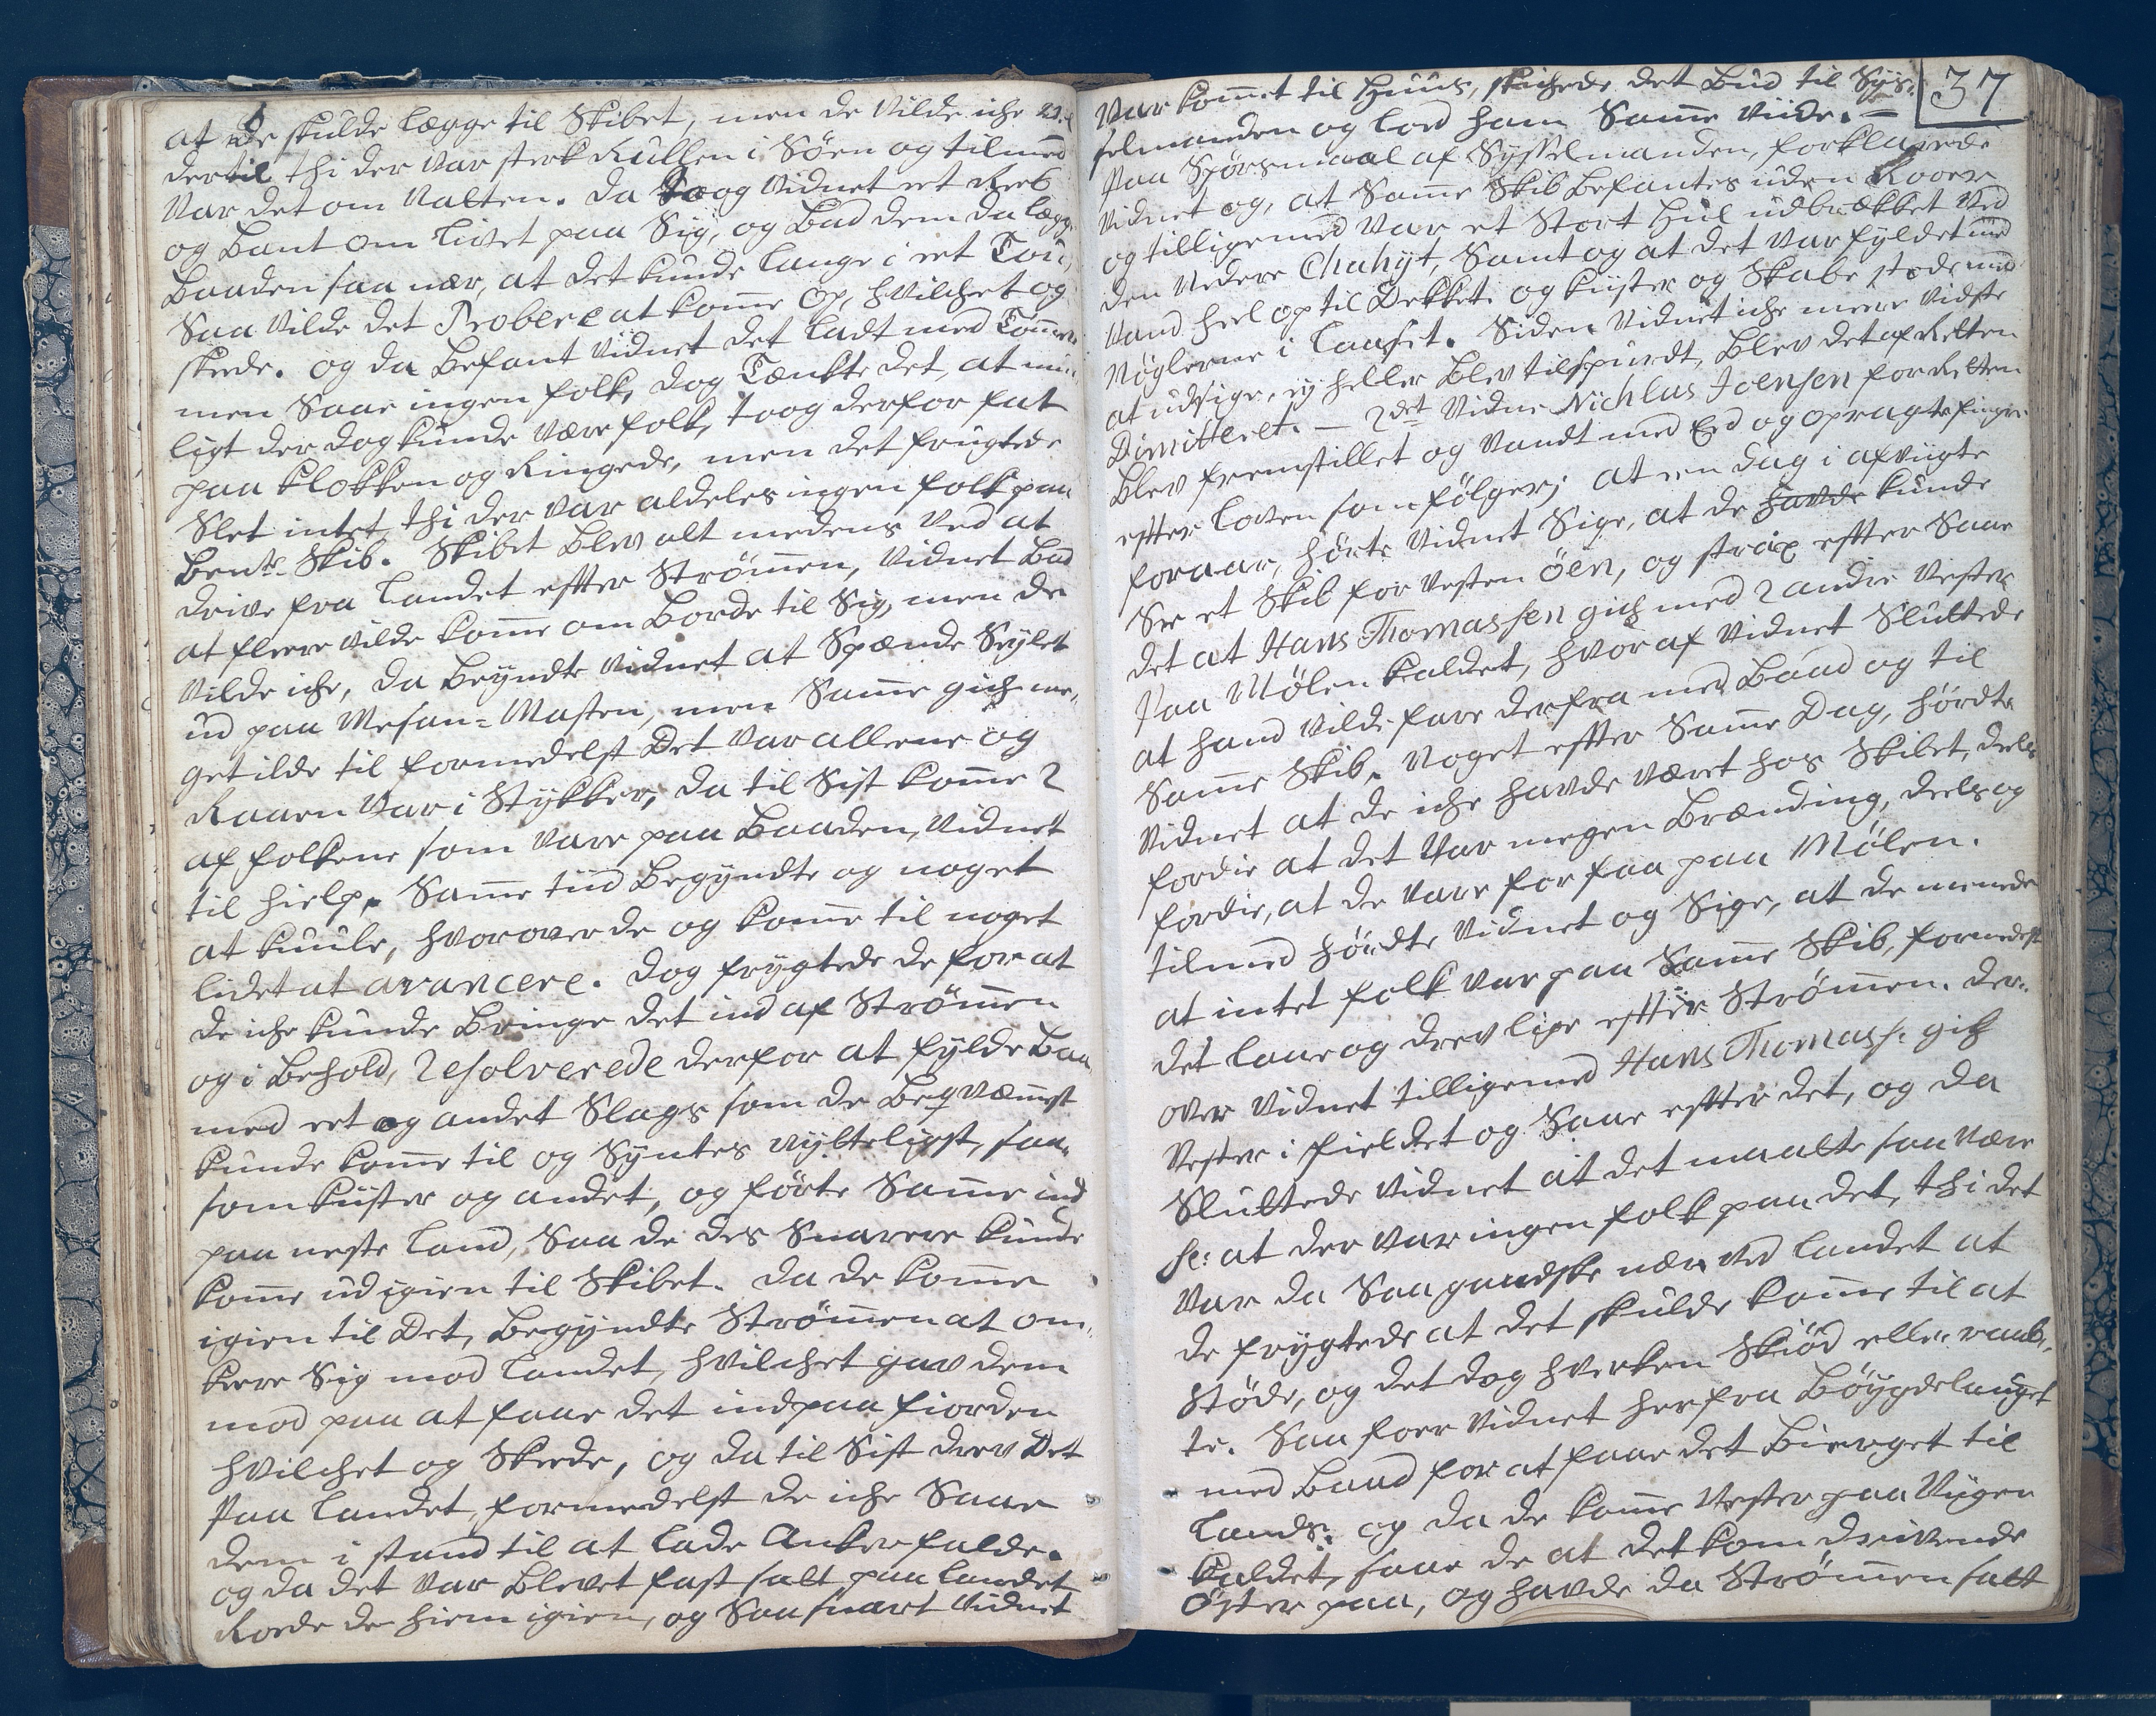 at de skulde lægge til Skibet, men de Vilde iche
dertil thi der Var sterk Rullen i Söen og tilmed
Var det om Natten. Da toog Vidnet et Reeb
og Bant om Livet paa Sig, og Bad dem da lægge
Baaden saa nær, at det kunde lange i et Tou,
Saa Vilde det Probere at kome Op, hvilchet og
skede. og da Befant Vidnet det ladt med Tömer
men Saae ingen folk, dog Tænkte det, at mü-
ligt der dog kunde Være folk, toog derfor fat
paa Klokken og Ringede, men det frugtede
Slet intet thi der Var aldeles ingen folk paa
Bente Skib. Skibet Blev alt medens Ved at
drive fra Landet efter Strömen, Vidnet Bad
at fleere Vilde kome om Borde til Sig, men de
Vilde iche, da Beyndte Vidnet at Spænde Seylet
ud paa Mesan-Masten, men Same gich me-
get ilde til formedelst Det Var allene og
Raaen Var i Stykker, da til Sist kome 2
af folkene som Vare paa Baaden, Vidnet
til hielp. Same tiid Begyndte og noget
at kuule, hvorover de og kome til noget
lidet at avancere. Dog frygtede de for at
de iche kunde Bringe det ind af Strömen
og i Behold, Resolverede derfor at fylde Baa
med eet og andet Slags som de Beqvæmst
kunde kome til og Syntes nytteligst, saa-
som kister og andet, og förte Same ind
paa neste Land, Saa de des Snarere kunde
kome ud igien til Skibet. Da de kome
igien til Det, Begyndte Strömen at om-
kere Sig mod Landet, hvilchet gav dem
mod paa at faae det ind paa fiorden
hvilchet og Skede, og da til Sist drev Det
Paa Landet, formedelst de iche Saae
dem i stand til at lade Anker falde.
og da det Var Blevet fast satt paa Landet
Roede de hiem igien, og Saa snart Vidnet
37
Var komet til Huus, skichede det Bud til Sys-
selmanden og lod ham Same Viide. —
Paa Spörsmaal af Sysselmanden, forklarede
Vidnet og, at Same Skib Befantes uden Roer
og tilligemed Var et Stort Hul udbrækket Ved
den Nedere Chahyt, Samt og at det Var fyldet med
Vand heel op til Dekket. og kister og Skabe stode med
Nöglerne i Laaset. Siden Vidnet iche mere Vidste
at udsige, ej heller Blev tilspurdt, Blev det af Retten
Dimitteret. — 2det Vidne Nichlas Joensen for Retten
Blev fremstillet og Vandt med Eed og opragte fingre
efter Loven som fölger; at en Dag i afvigte
foraar, hörte Vidnet Sige, at de havde kunde
See et Skib for Vesten öen, og strax efter Saae
det at Hans Thomassen gich med 2 andre Vester
Paa Mölen kaldet, hvoraf Vidnet Sluttede
at hand Vilde fare derfra med Baad og til
Same Skib. Noget efter Same Dag, hördte
Vidnet at de iche havde Været hos Skibet, deels
fordie at det Var megen Brænding, deels og
fordie, at de Vare for faa paa Mölen.
tilmed hördte Vidnet og Sige, at de meente
at intet folk Var paa Same Skib, formedelst
det laae og drev lige efter Strömen. der-
over Vidnet tilligemed Hans Thomass: gich
Vester i fieldet og Saae efter det, og da
Sluttede Vidnet at det maatte saa Være
sc: at der Var ingen folk paa det, thi det
Var da Saa gandske nær Ved Landet at
de frygtede at det skulde kome til at
Stöde, og det dog hverken Skiöd eller raab-
te. Saa foer Vidnet herfra Böygdelauget
med Baad for at faae det Bierget til
Lands. og da de kome Vester paa Viigen
kaldet, saae de at det kom drivende
Öster paa, og havde da Strömen satt